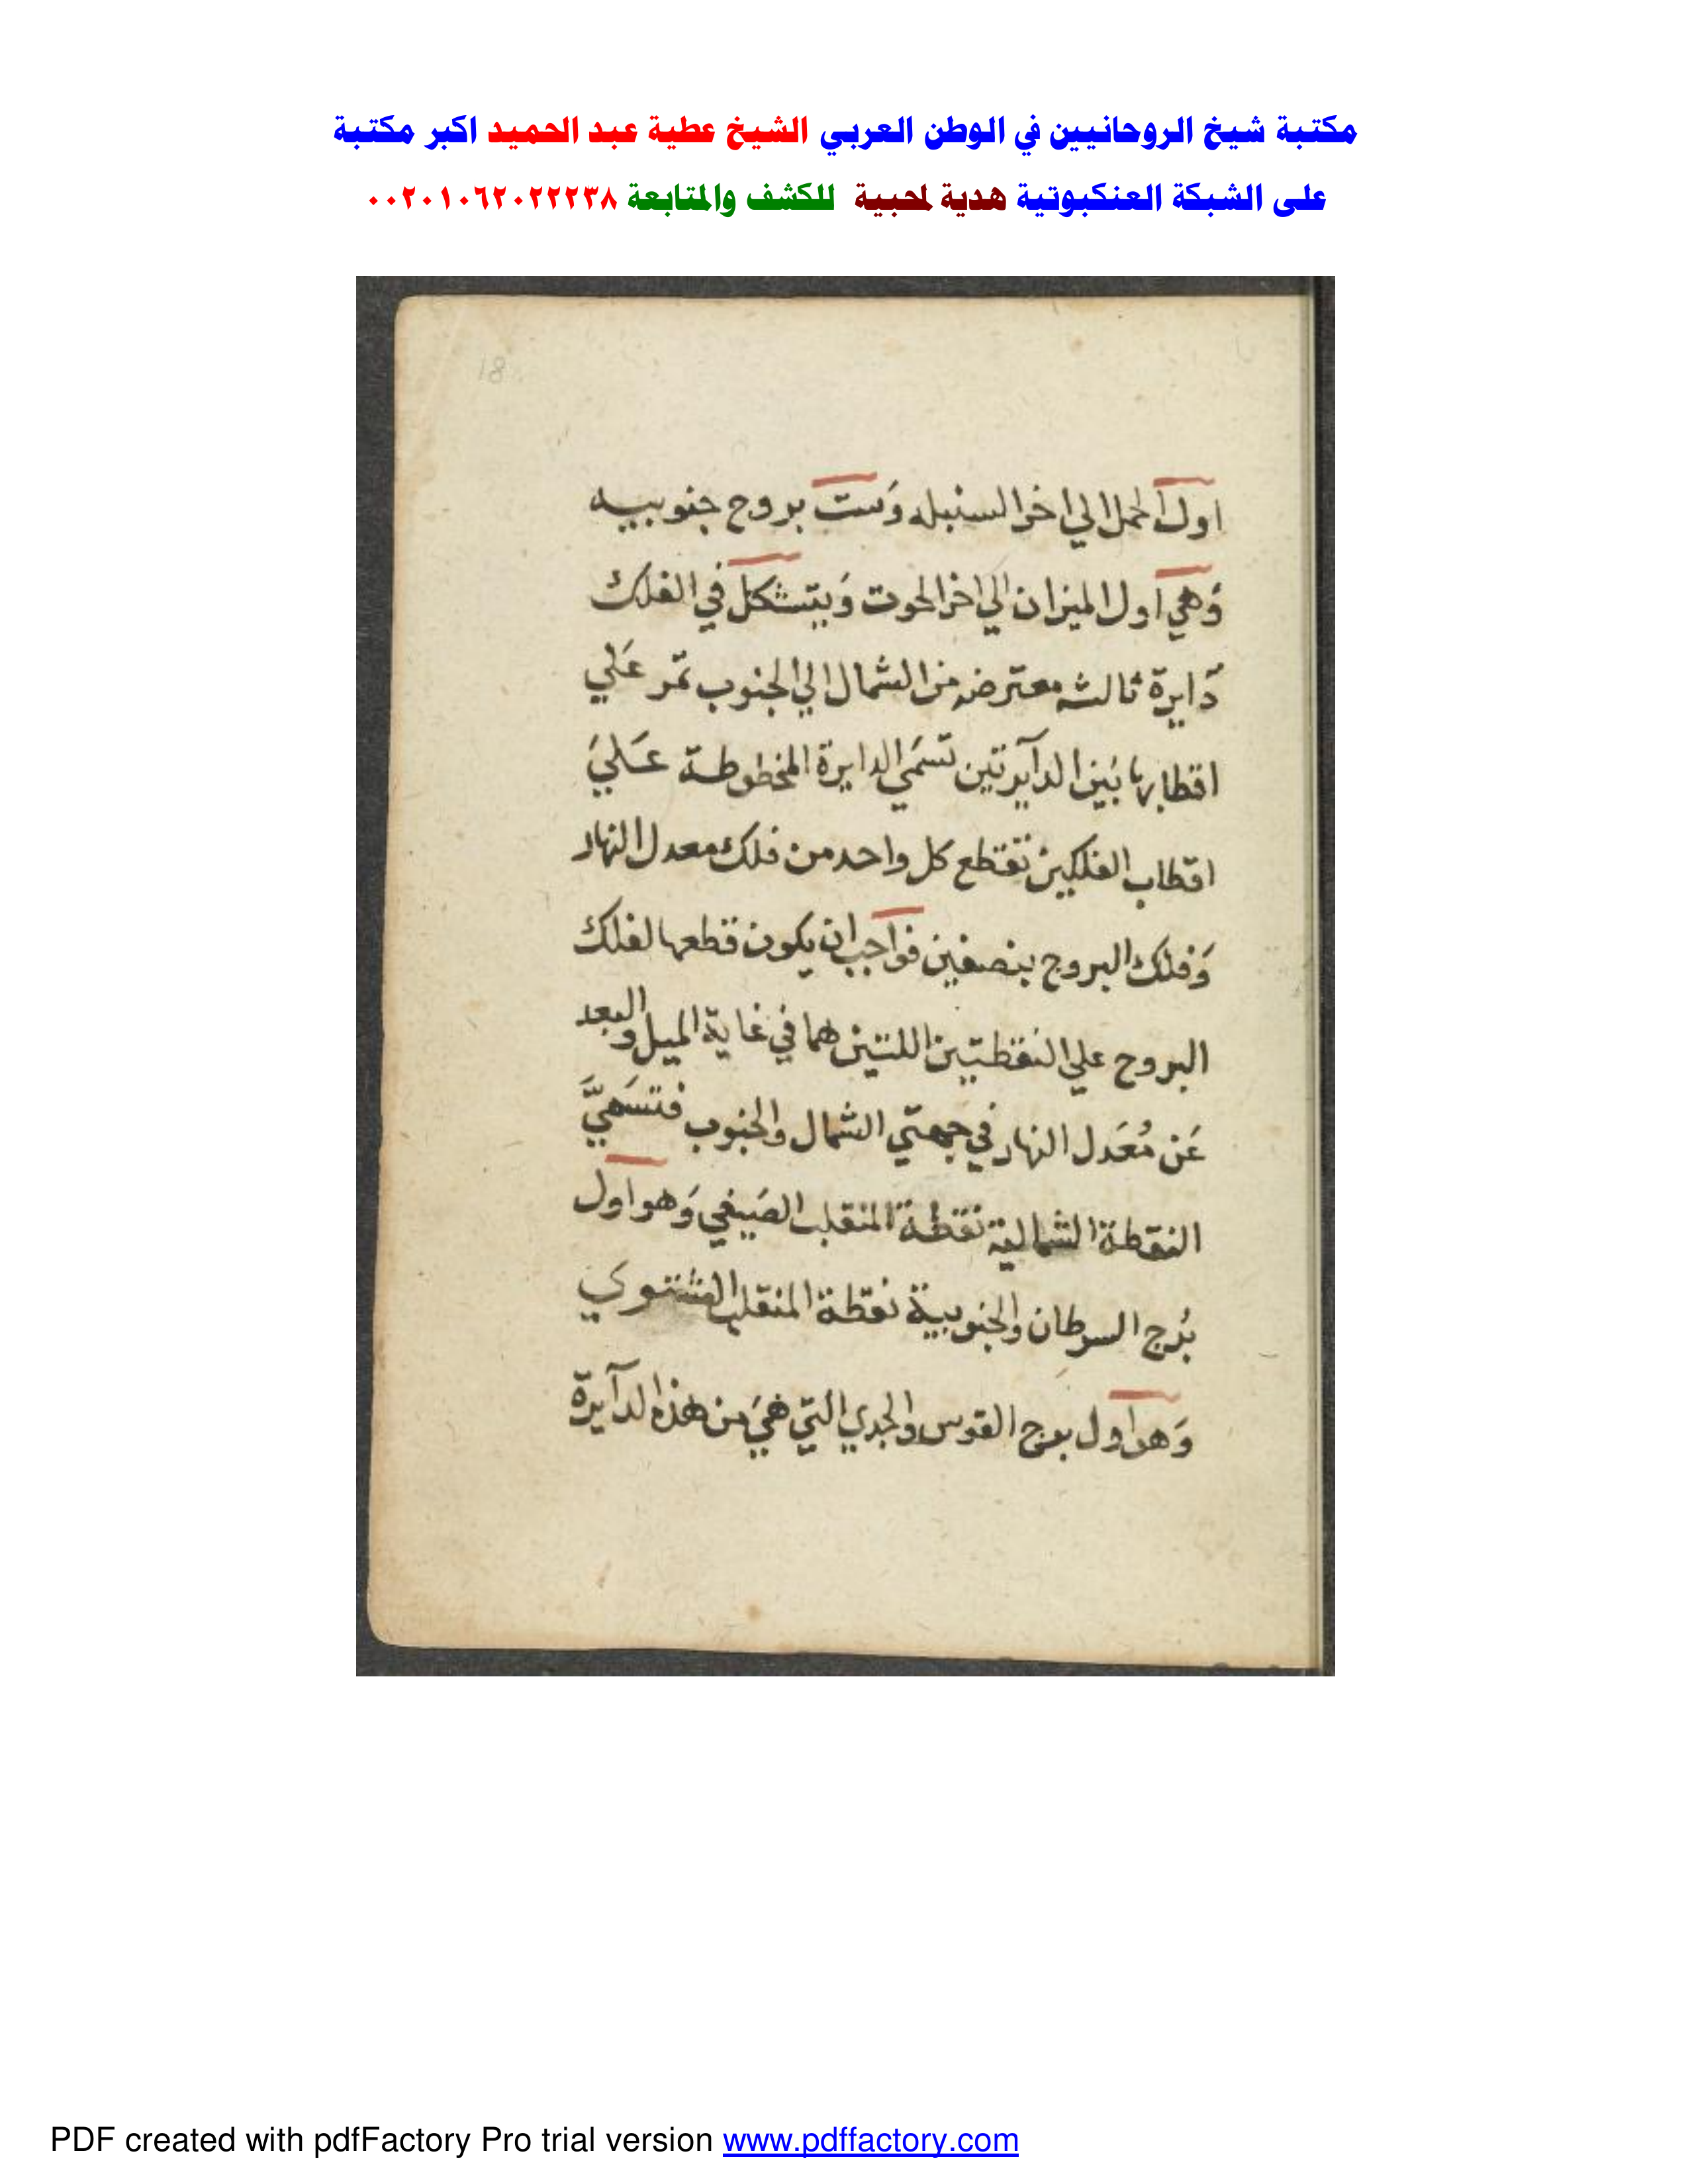 مكتبة شيخ الروحانيين في الوطن العربي الشيخ عطية عبد الحميد اكبر مكتبة
على الشبكة العنكبوتية هدية لمحبية للكشف والمتابعة ٠٠٢٠١٠٦٢٠٢٢٢٣٨
18
اول الحمل الي اخر السنبله وَست بروج جنوبيه
وَهي اول الميزان الي اخر الحوت وَيتشكل في الفلك
دَايرة ثالثه معترضه من الشمال الي الجنوب تمّر عَلي
اقطابها بَين الدآيرتين تسَمي الدايرة المخطوطة عَليَ
اقطاب الفلكين تقتطع كل واحد من فلك معدل النهار
وَفلك البروج بنصفين فواجب ان يكون قطعها لفلك
البروج علي النقطتين اللتين هما في غاية الميل والبعد
عَن مُعَدل النهار في جهتي الشمال والجنوب فتسَميَّ
النقطة الشمالية نقطة المنقلب الصَيفي وَهو اول
بُرج السرطان والجنوبية نقطة المنقلب الشتوي
وَهو اول برج القوس والجدي التي هيَ من هذه الدآيرة
PDF created with pdfFactory Pro trial version www.pdffactory.com